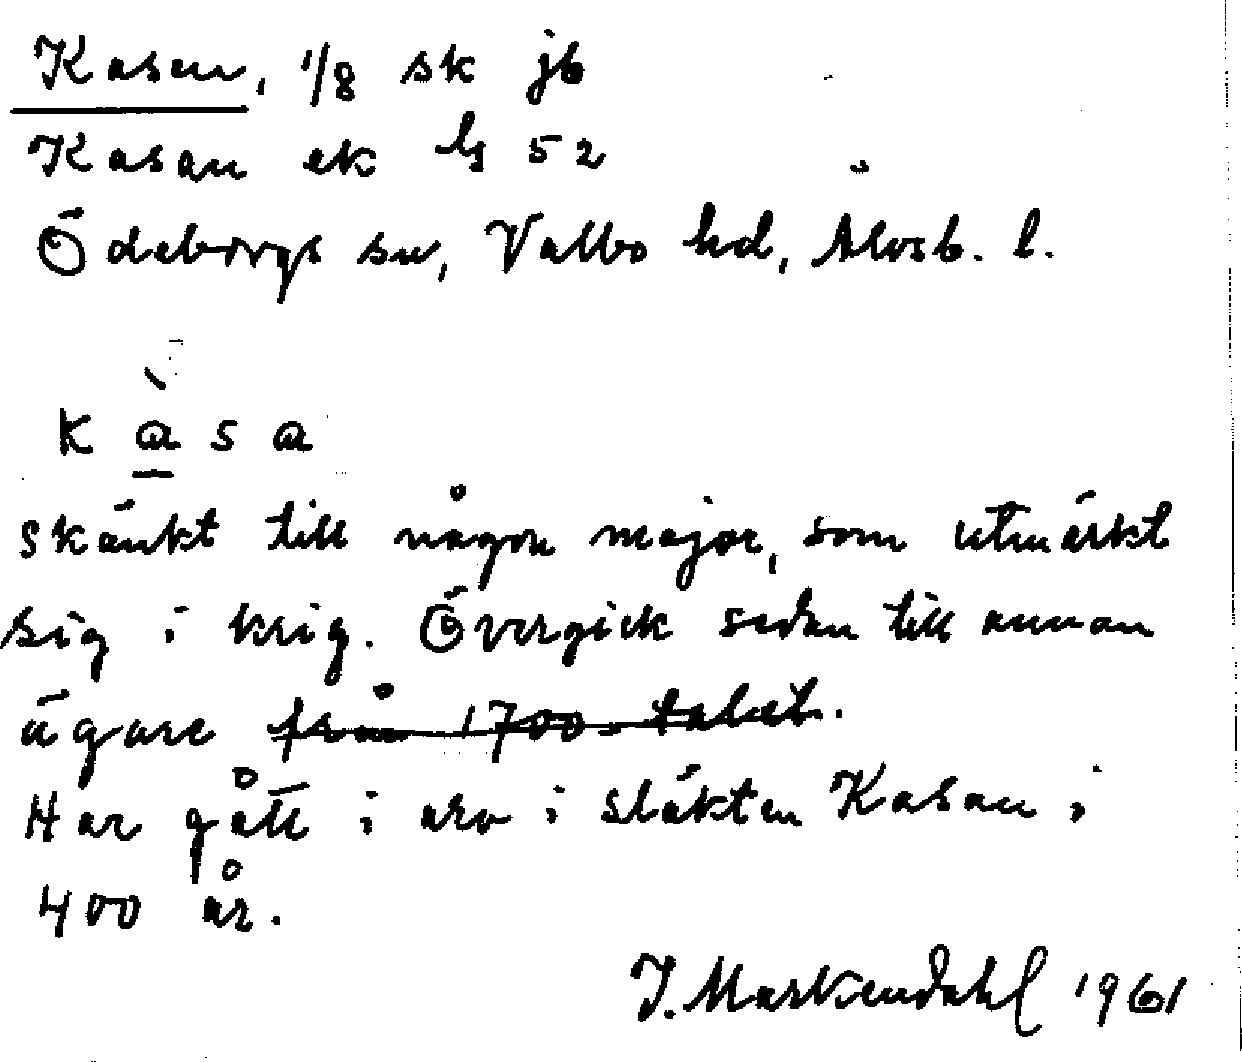 Kasen, 1/8 sk jb
Kasan ek bl 52
Ödeborgs sn, Valbo hd, Älvsb. l.
kàsa
skänkt till någon major, som utmärkt
sig i krig. Övergick sedan till annan
ägare från 1700-talet.
Har gått i arv i släkten Kasan i
400 år.
J. Markendahl 1961